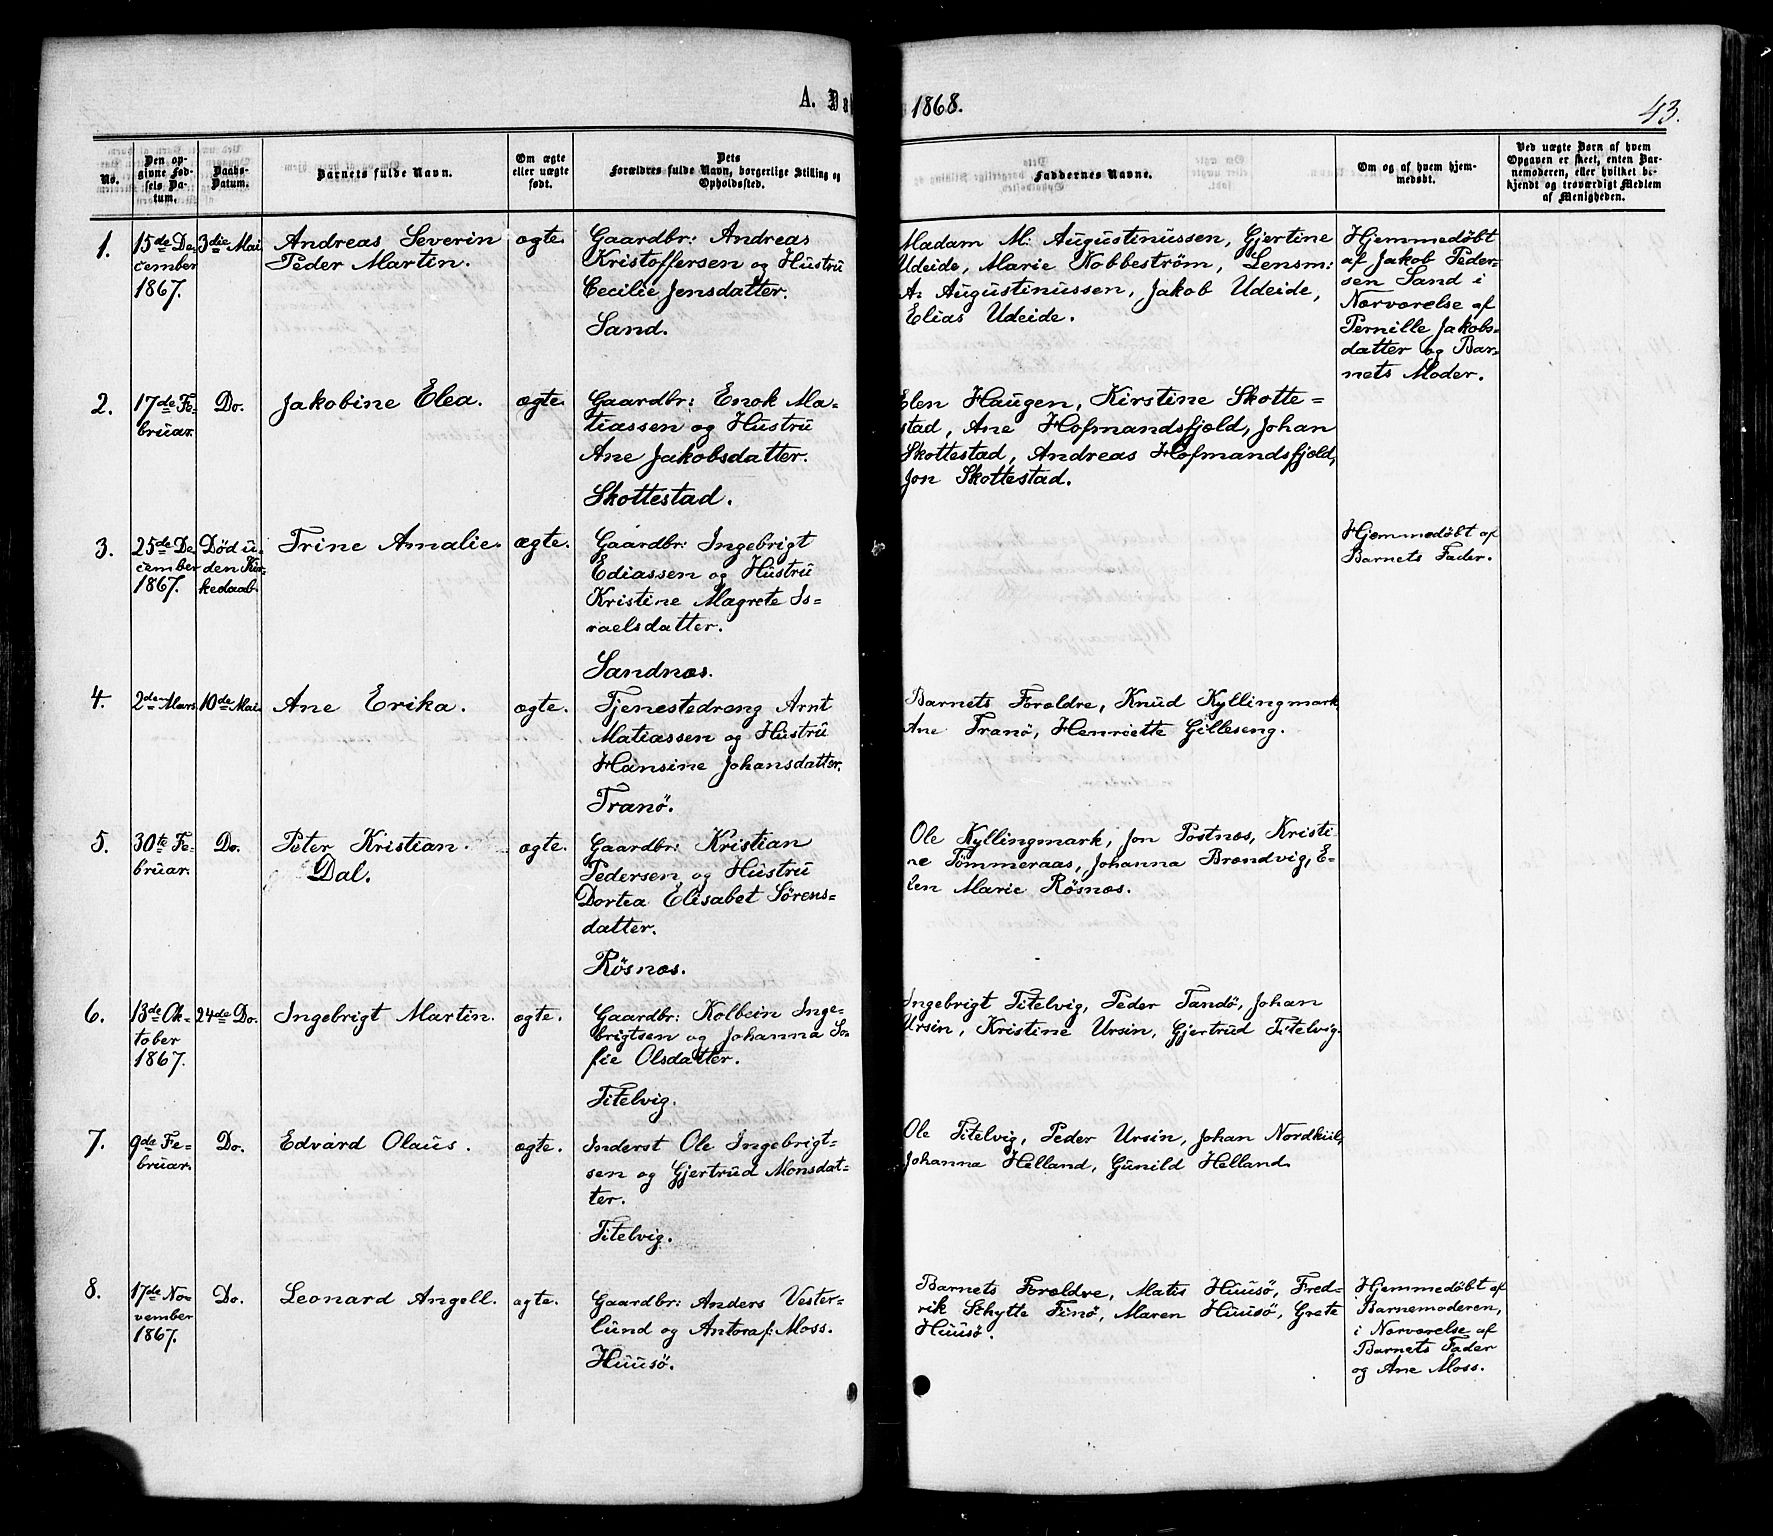 A. Dab
1868.
43.
No.
Den op-
givne Fød-
sels Da-
tum.
Daabs-
Datum.
Barnets fulde Navn.
Om ægte
eller uægte
født.
Dets
Forældres fulde Navn, borgerlige Stilling og
Opholdssted.
Faddernes Navne.
Om og af hvem hjem-
medøbt.
Ved uægte Børn af hvem
Opgaven er skeet, enten Bar-
nemoderen, eller hvilket be-
kjendt og troværdigt Medlem
af Menigheden.
1.
15de De
cember
1867.
3die Mai
Andreas Severin
Peder Martin.
ægte.
Gaardbr: Andreas
Kristoffersen og Hustru
Cecilie Jensdatter.
Sand.
Madam M: Augustinussen, Gjertine
Udeide, Marie Nobbeström, Lensm:
A: Augustinussen, Jakob Udeide,
Elias Udeide.
Hjemmedøbt
af Jakob Peder-
sen Sand i
Nærværelse af
Pernille Jakobs-
datter og Bar-
nets Moder.
2.
17de Fe-
bruar.
Do.
Jakobine Elea.
ægte.
Gaardbr: Enok Ma-
tiassen og Hustru
Ane Jakobsdatter.
Skottestad.
Elen Haugen, Kirstine Skotte=
stad, Ane Hofmandsfjeld, Johan
Skottestad, Andreas Hofmandsfjeld,
Jon Skottestad.
3.
25de De
cember
1867.
Død u-
den Kir-
kedaab.
Trine Amalie.
ægte.
Gaardbr: Ingebrigt
Ediassen og Hustru
Kristine Magrete Is-
raelsdatter.
Sandnæs.
Hjemmedøbt af
Barnets Fader.
4.
2den Mars
10de Mai
Ane Erika.
ægte.
Tjenestedreng Arnt
Matiassen og Hustru
Hansine Johansdatter.
Tranö.
Barnets Forældre, Knud Kyllingmark
Ane Tranö, Henriette Gilleseng.
5.
30te Fe-
bruar.
Do.
Peter Kristian.
Dal.
ægte.
Gaardbr: Kristian
Pedersen og Hustru
Dortea Elisabet Sörens-
datter.
Rösnæs.
Ole Kyllingmark, Jon Postnæs, Kristi-
ne Tömmeraas, Johanna Brændvig, E-
len Marie Rösnæs.
6.
13de Ok-
tober
1867.
24de Do.
Ingebrigt Martin.
ægte.
Gaardbr: Kolbein Inge-
brigtsen og Johanna So-
fie Olsdatter.
Titelvig.
Ingebrigt Titelvig, Peder Tandö, Johan
Ursin, Kristine Ursin, Gjertrud Titelvig.
7.
9de Fe-
bruar.
Do.
Edvard Olaus.
ægte.
Inderst Ole Ingebrigt-
sen og Gjertrud Monsdat-
ter.
Titelvig.
Ole Titelvig, Peder Ursin, Johan Nordkiil,
Johanna Helland, Gunild Helland.
8.
17de No-
vember
1867.
Do.
Leonard Angell.
ægte.
Gaardbr: Anders Vester-
lund og Antora f: Moss.
Huusö.
Barnets Forældre, Mats Huusö, Fred-
rik Schytte Finö, Maren Huusö, Grete
Huusö.
Hjemmedøbt af
Barnemoderen,
i Nærværelse af
Barnets Fader
og Ane Moss.